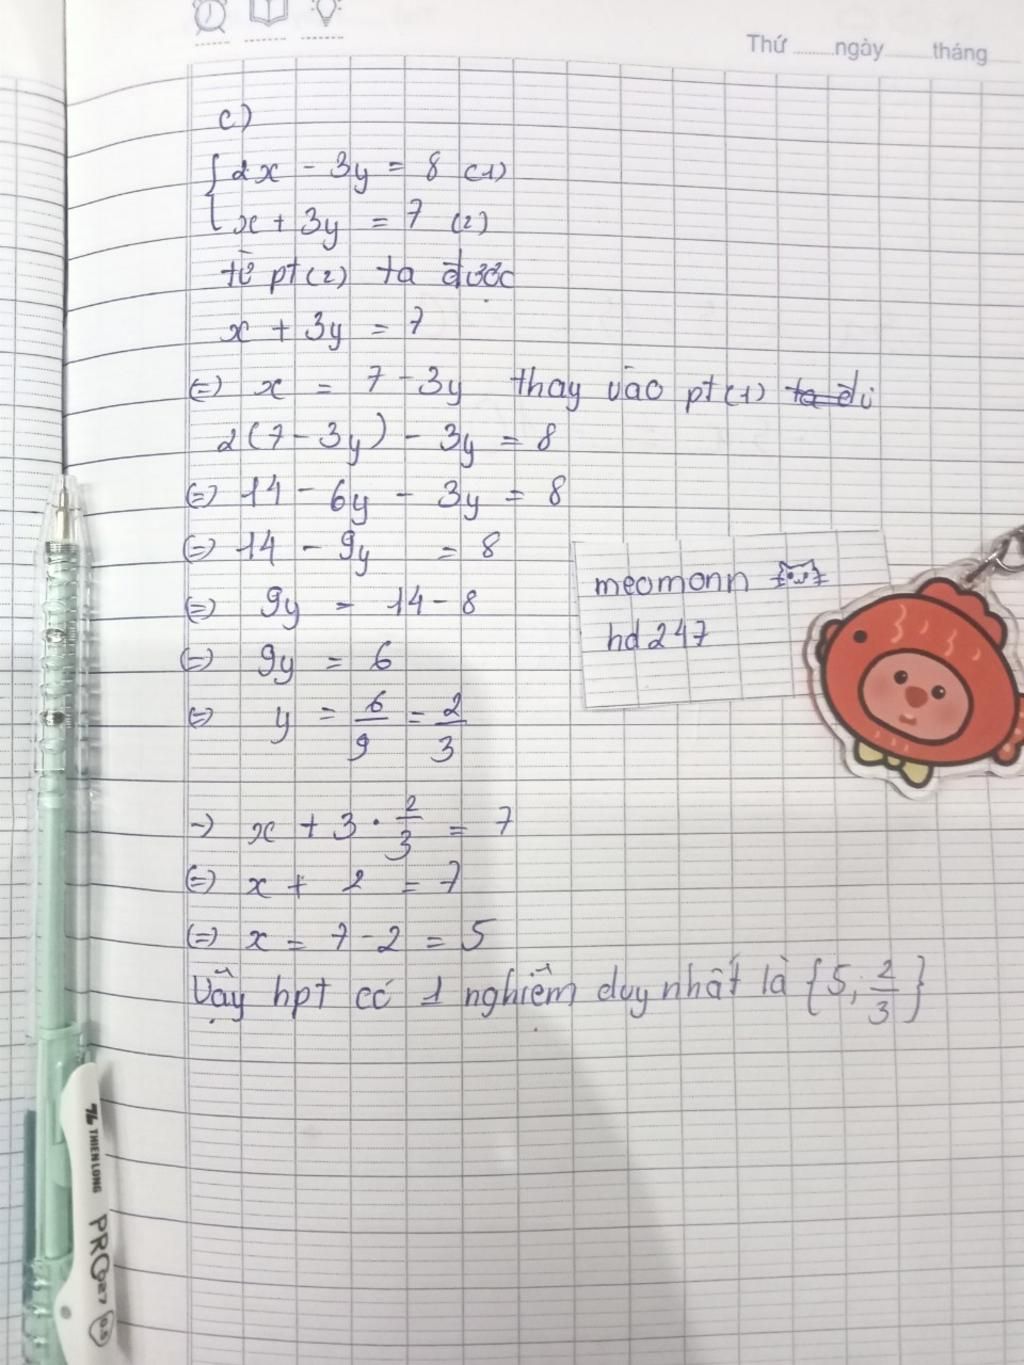 Thứ ........ngày........tháng
c)
{ 2x - 3y = 8 (1)
x + 3y = 7 (2)
từ pt(2) ta được
x + 3y = 7
(=) x = 7 - 3y thay vào pt(1) ta đư
2(7 - 3y) - 3y = 8
(=) 14 - 6y - 3y = 8
(=) 14 - 9y = 8
(=) 9y = 14 - 8
(=) 9y = 6
(=) y = 6/9 = 2/3
meomonn
hd247
-) x + 3 · 2/3 = 7
(=) x + 2 = 7
(=) x = 7 - 2 = 5
Vậy hpt có 1 nghiệm duy nhất là {5, 2/3}
TL THIEN LONG
PRO
027
0.5